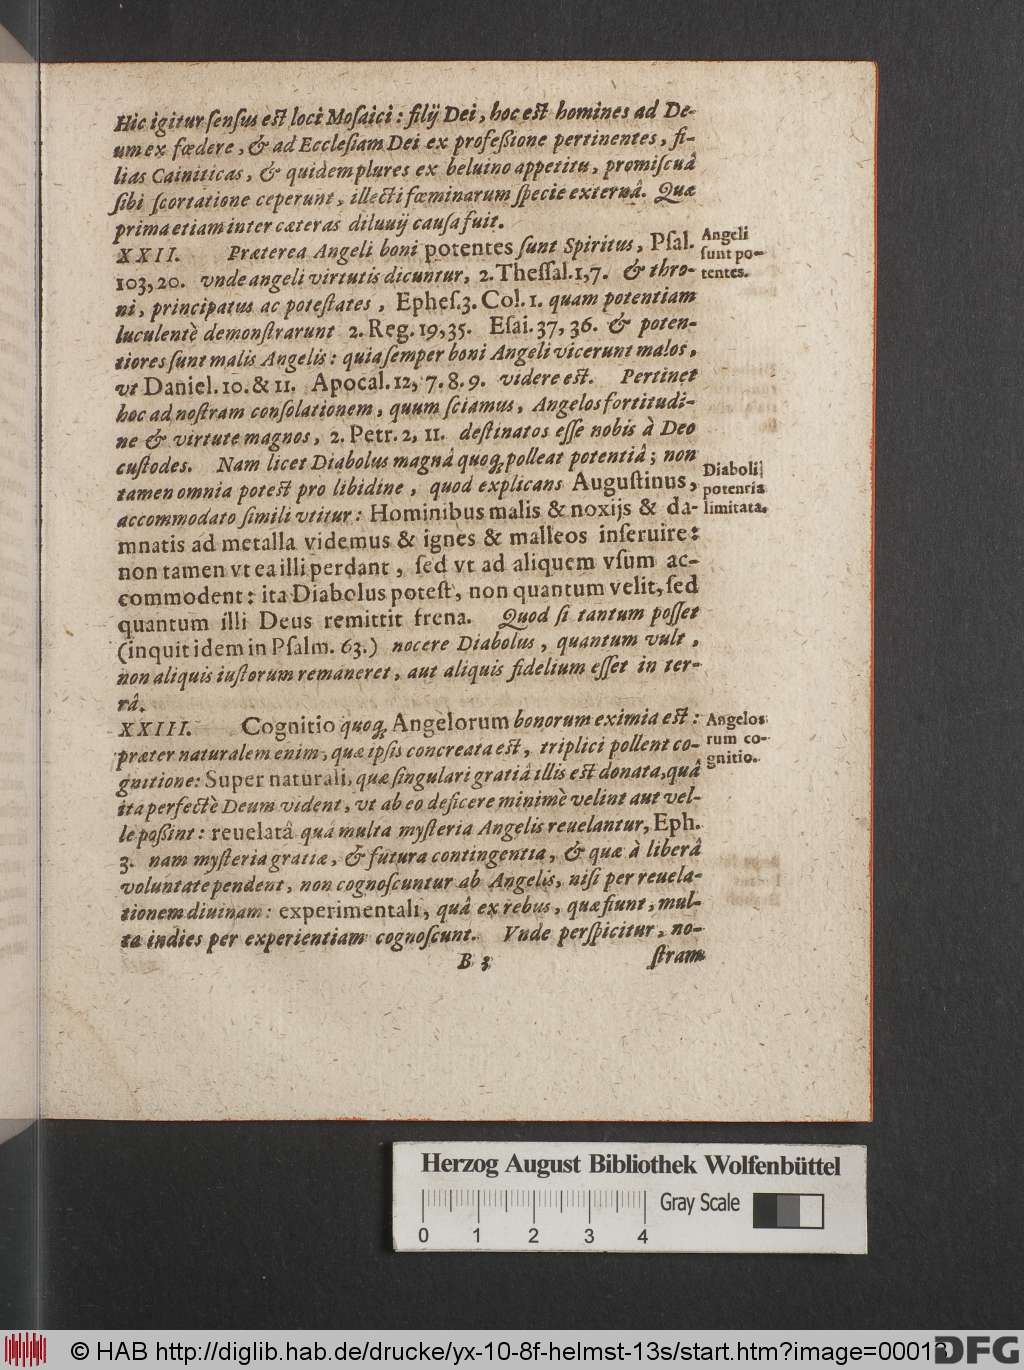 Hic igitur ſenſus eſt loci Moſaici: filij Dei, hoc eſt homines ad De-
um ex fœdere, & ad Eccleſiam Dei ex profeßione pertinentes, fi-
lias Cainiticas, & quidem plures ex beluino appetitu, promiſcuâ
ſibi ſcortatione ceperunt, illecti fœminarum ſpecie externâ. Quæ
prima etiam inter cæteras diluuij cauſa fuit.
XXII. Præterea Angeli boni potentes ſunt Spiritus, Pſal.
Angeli
ſunt po-
tentes.
103, 20. vnde angeli virtutis dicuntur, 2. Theſſal. 1, 7. & thro-
ni, principatus ac poteſtates, Epheſ. 3. Col. 1. quam potentiam
luculentè demonſtrarunt 2. Reg. 19, 35. Eſai. 37, 36. & poten-
tiores ſunt malis Angelis: quia ſemper boni Angeli vicerunt malos,
vt Daniel. 10. & 11. Apocal. 12, 7. 8. 9. videre eſt. Pertinet
hoc ad noſtram conſolationem, quum ſciamus, Angelos fortitudi-
ne & virtute magnos, 2. Petr. 2, 11. deſtinatos eſſe nobis à Deo
cuſtodes. Nam licet Diabolus magnâ quoq; polleat potentiâ; non
Diaboli
potentia
limitata.
tamen omnia poteſt pro libidine, quod explicans Auguſtinus,
accommodato ſimili vtitur: Hominibus malis & noxijs & da-
mnatis ad metalla videmus & ignes & malleos inſeruire:
non tamen vt ea illi perdant, ſed vt ad aliquem vſum ac-
commodent: ita Diabolus poteſt, non quantum velit, ſed
quantum illi Deus remittit frena. Quod ſi tantum poſſet
(inquit idem in Pſalm. 63.) nocere Diabolus, quantum vult,
non aliquis iuſtorum remaneret, aut aliquis fidelium eſſet in ter-
râ.
XXIII. Cognitio quoq; Angelorum bonorum eximia eſt:
Angelo-
rum co-
gnitio.
præter naturalem enim, quæ ipſis concreata eſt, triplici pollent co-
gnitione: Supernaturali, quæ ſingulari gratiâ illis eſt donata, quâ
ita perfectè Deum vident, vt ab eo deficere minimè velint aut vel-
le poßint: reuelatâ quâ multa myſteria Angelis reuelantur, Eph.
3. nam myſteria gratiæ, & futura contingentia, & quæ à liberâ
voluntate pendent, non cognoſcuntur ab Angelis, niſi per reuela-
tionem diuinam: experimentali, quâ ex rebus, quæ fiunt, mul-
ta indies per experientiam cognoſcunt. Vnde perſpicitur, no-
B 3
ſtram
Herzog August Bibliothek Wolfenbüttel
Gray Scale
0 1 2 3 4
© HAB http://diglib.hab.de/drucke/yx-10-8f-helmst-13s/start.htm?image=00013
DFG